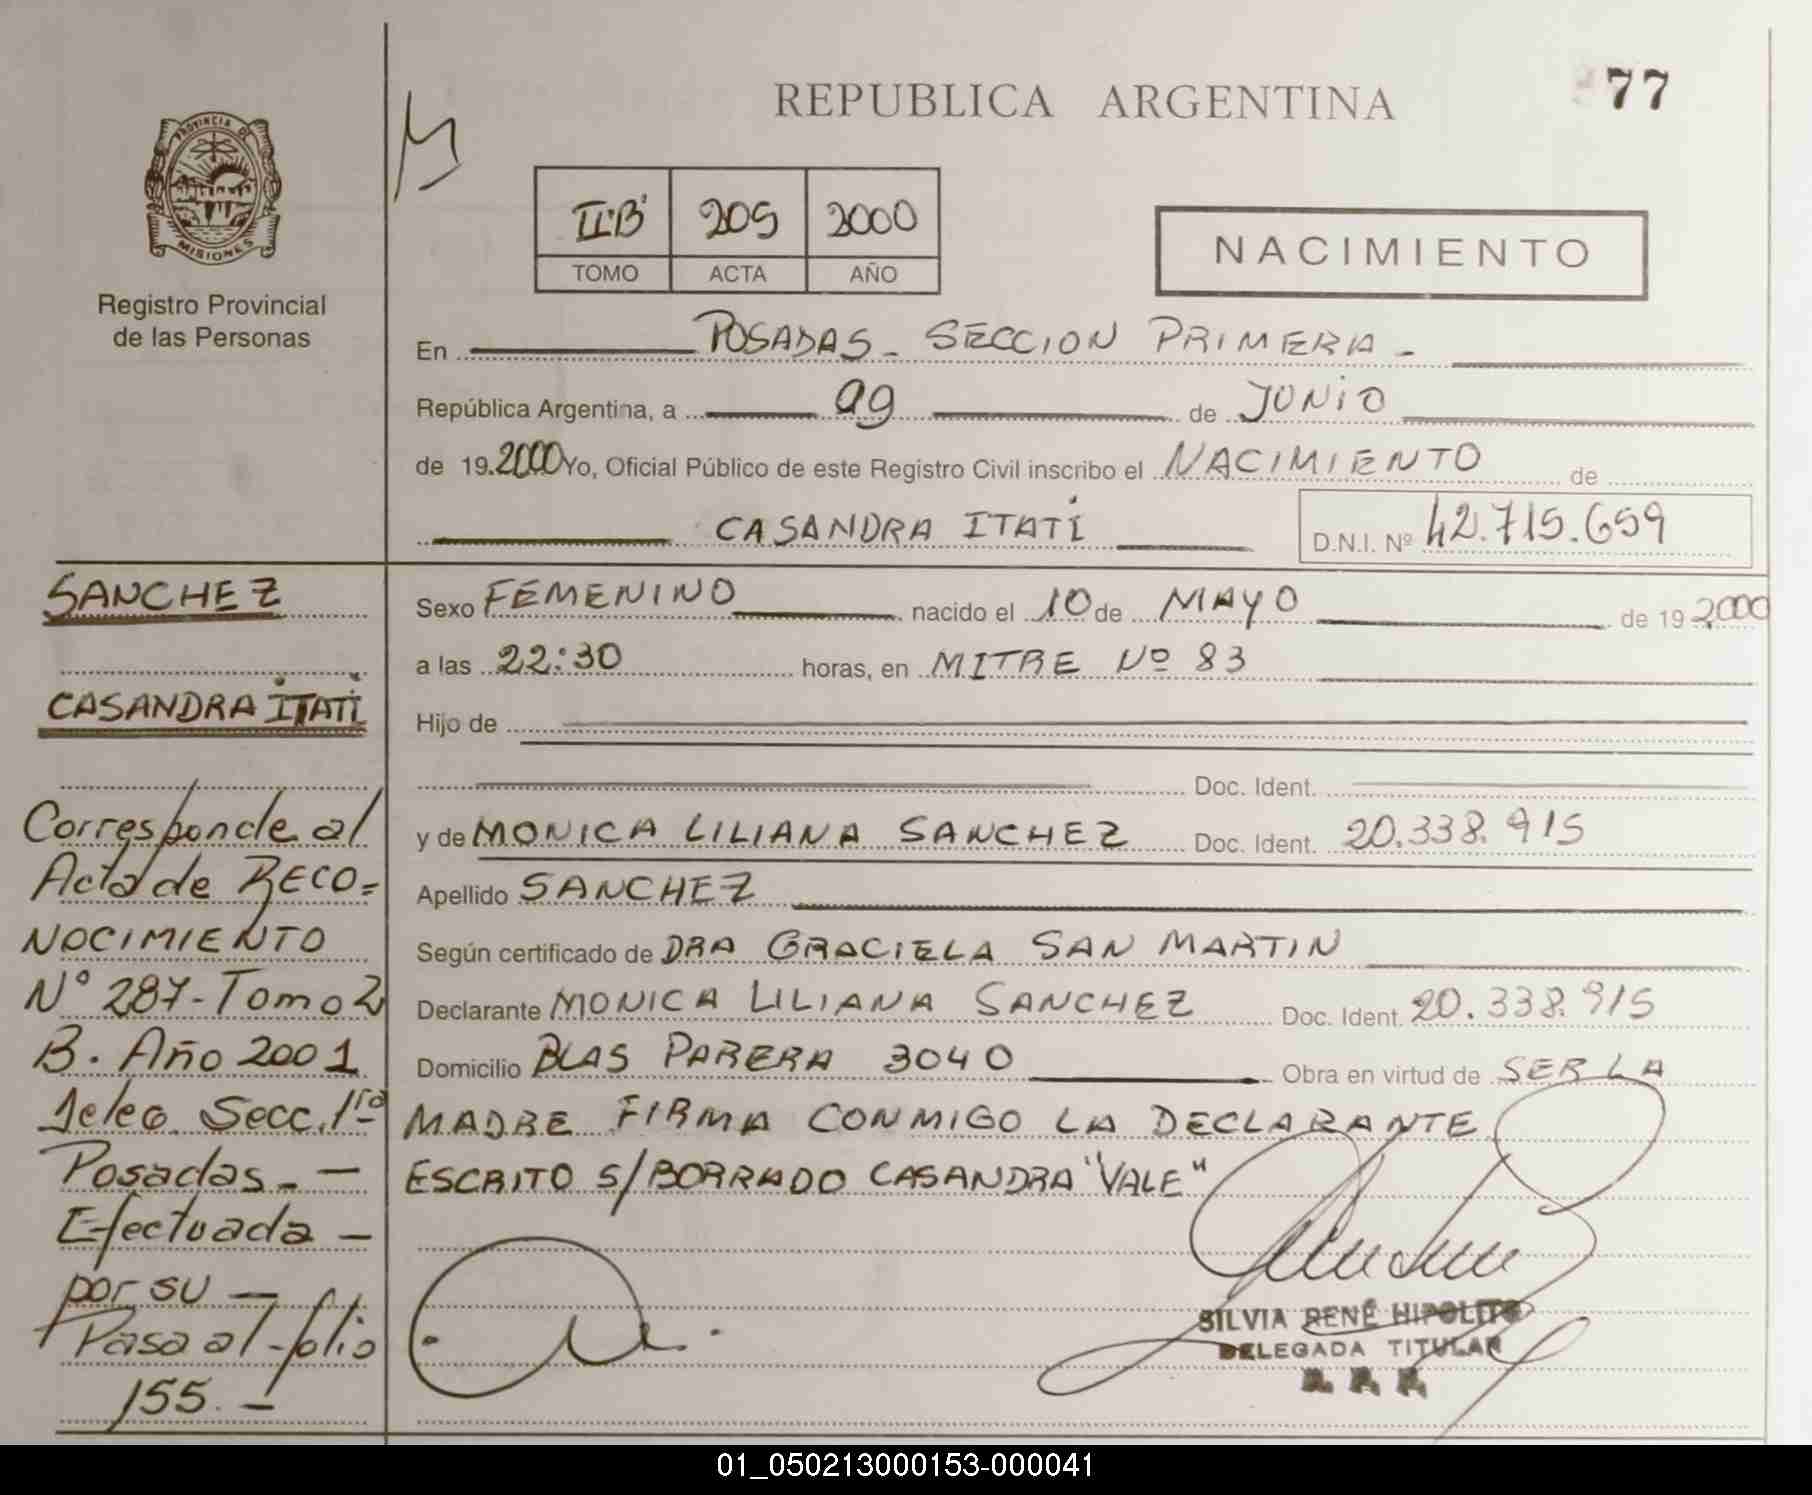 REPUBLICA ARGENTINA
77
PROVINCIA DE
MISIONES
Registro Provincial
de las Personas
II "B" 205 2000
TOMO ACTA AÑO
NACIMIENTO
En POSADAS - SECCION PRIMERA -
República Argentina, a 09 de JUNIO
de 19.2000 Yo, Oficial Público de este Registro Civil inscribo el NACIMIENTO de
CASANDRA ITATÍ
D.N.I. Nº 42.715.659
SANCHEZ
CASANDRA ITATÍ
Sexo FEMENINO nacido el 10 de MAYO de 19 2000
a las 22:30 horas, en MITRE Nº 83
Hijo de
Doc. Ident.
y de MONICA LILIANA SANCHEZ Doc. Ident. 20.338.915
Apellido SANCHEZ
Según certificado de DRA GRACIELA SAN MARTIN
Declarante MONICA LILIANA SANCHEZ Doc. Ident. 20.338.915
Domicilio BLAS PARERA 3040 Obra en virtud de SER LA
MADRE FIRMA CONMIGO LA DECLARANTE
ESCRITO S/BORRADO CASANDRA "VALE"
Corresponde al
Acta de RECO=
NOCIMIENTO
Nº 287-Tomo 2
B. Año 2001
Secc. 1ra
Posadas. —
Efectuada —
por su —
Pasa al folio
155. —
SILVIA RENÉ HIPOLITO
DELEGADA TITULAR
01_050213000153-000041